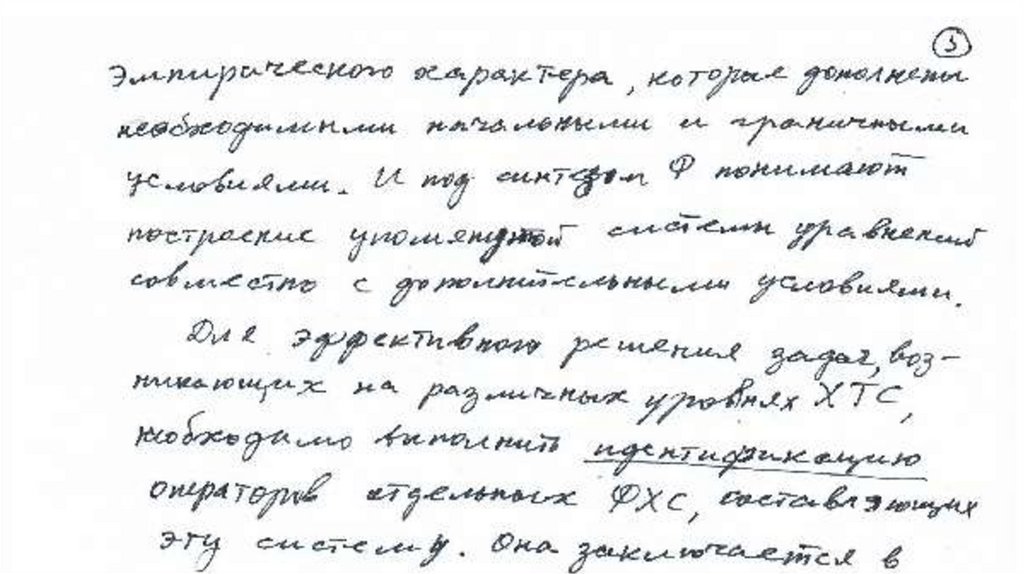 3
эмпирического характера, которые дополнены
необходимыми начальными и граничными
условиями. И под синтезом Ф понимают
построение упомянутой системы уравнений
совместно с дополнительными условиями.
Для эффективного решения задач, воз-
никающих на различных уровнях ХТС,
необходимо выполнить идентификацию
операторов отдельных ФХС, составляющих
эту систему. Она заключается в